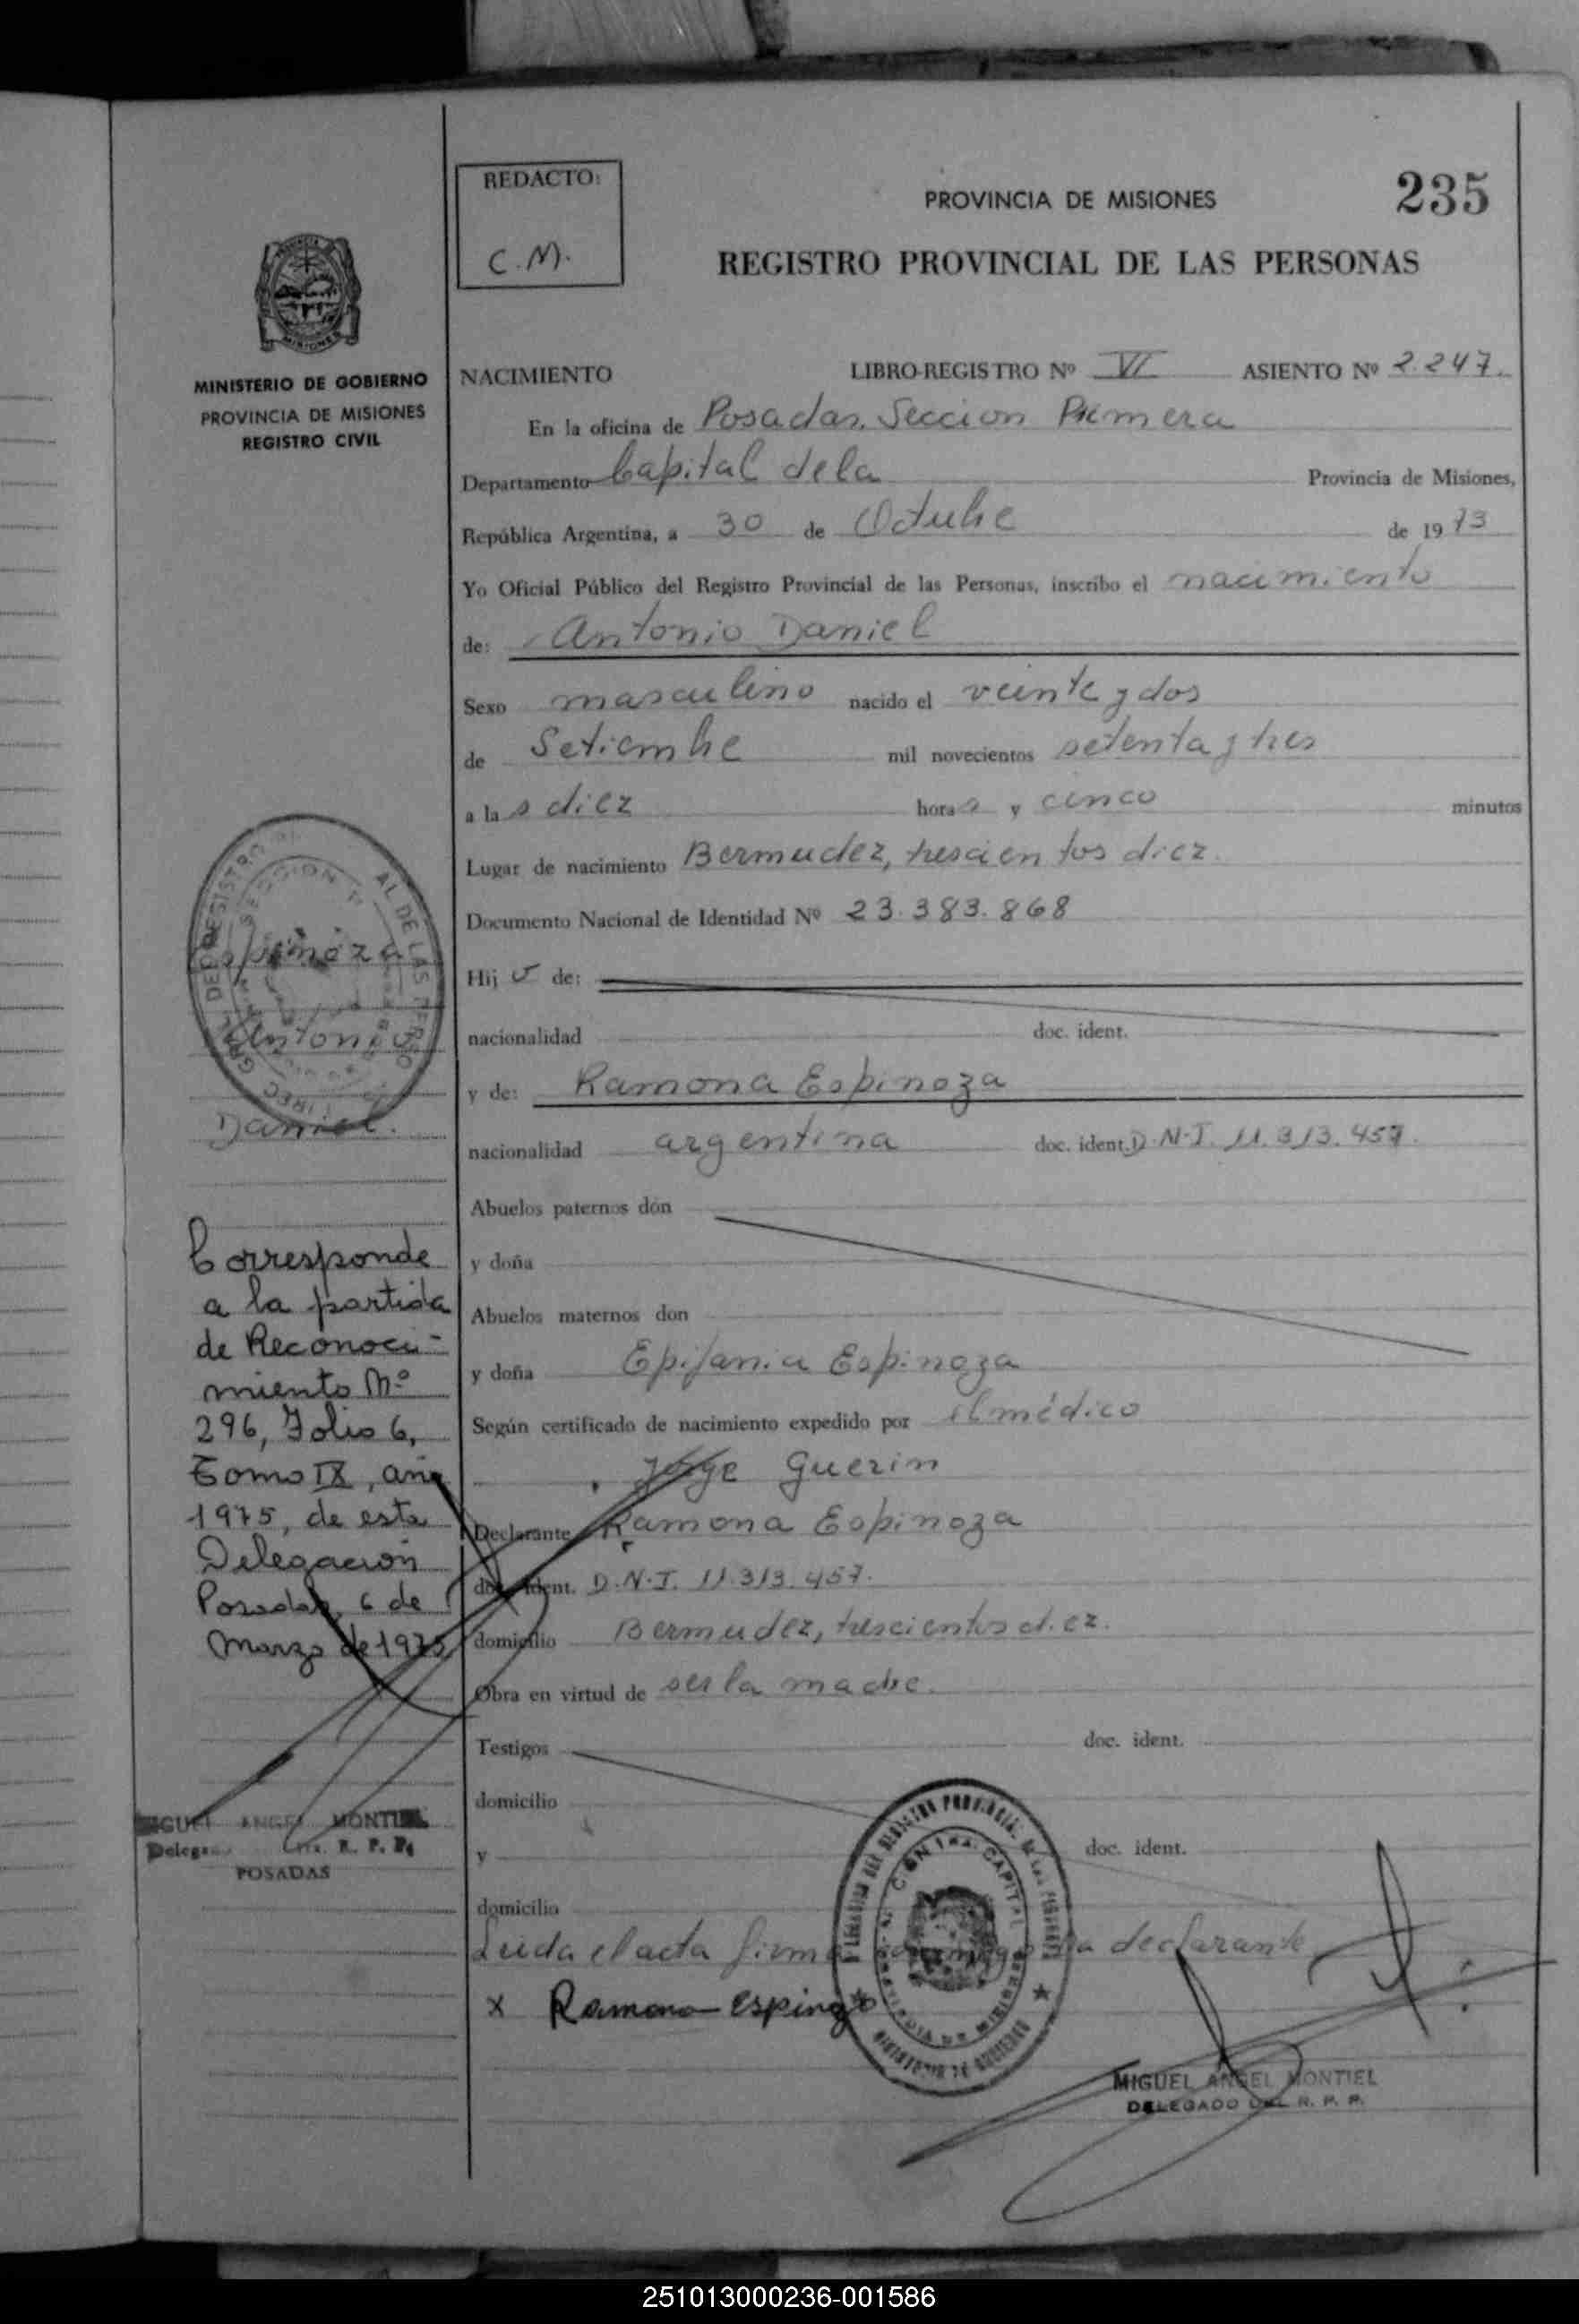 REDACTO:
C.M.
PROVINCIA DE MISIONES
235
REGISTRO PROVINCIAL DE LAS PERSONAS
MISIONES
MINISTERIO DE GOBIERNO
PROVINCIA DE MISIONES
REGISTRO CIVIL
NACIMIENTO LIBRO-REGISTRO Nº VI ASIENTO Nº 2.247.
En la oficina de Posadas, Seccion Primera
Departamento Capital de la Provincia de Misiones,
República Argentina, a 30 de Octubre de 1973
Yo Oficial Público del Registro Provincial de las Personas, inscribo el nacimiento
de: Antonio Daniel
Sexo masculino nacido el veinte y dos
de Setiembre mil novecientos setenta y tres
a las diez horas y cinco minutos
Lugar de nacimiento Bermudez, trescientos diez.
Documento Nacional de Identidad Nº 23.383.868
Hijo de:
nacionalidad doc. ident.
y de: Ramona Espinoza
nacionalidad argentina doc. ident. D.N.I. 11.313.457.
Abuelos paternos don
y doña
Abuelos maternos don
y doña Epifania Espinoza
Según certificado de nacimiento expedido por el médico
Jorge Guerin
Declarante Ramona Espinoza
doc. ident. D.N.I. 11.313.457.
domicilio Bermudez, trescientos diez.
Obra en virtud de ser la madre.
Testigos doc. ident.
domicilio
y doc. ident.
domicilio
Leida el acta firma conmigo la declarante
x Ramona Espinoza
MIGUEL ANGEL MONTIEL
DELEGADO DEL R. P. P.
Espinoza
Antonio
Daniel.
Corresponde
a la partida
de Reconoci-
miento Nº
296, Folio 6,
Tomo IX, año
1975, de esta
Delegación
Posadas, 6 de
Marzo de 1975
MIGUEL ANGEL MONTIEL
R. P. P.
POSADAS
251013000236-001586